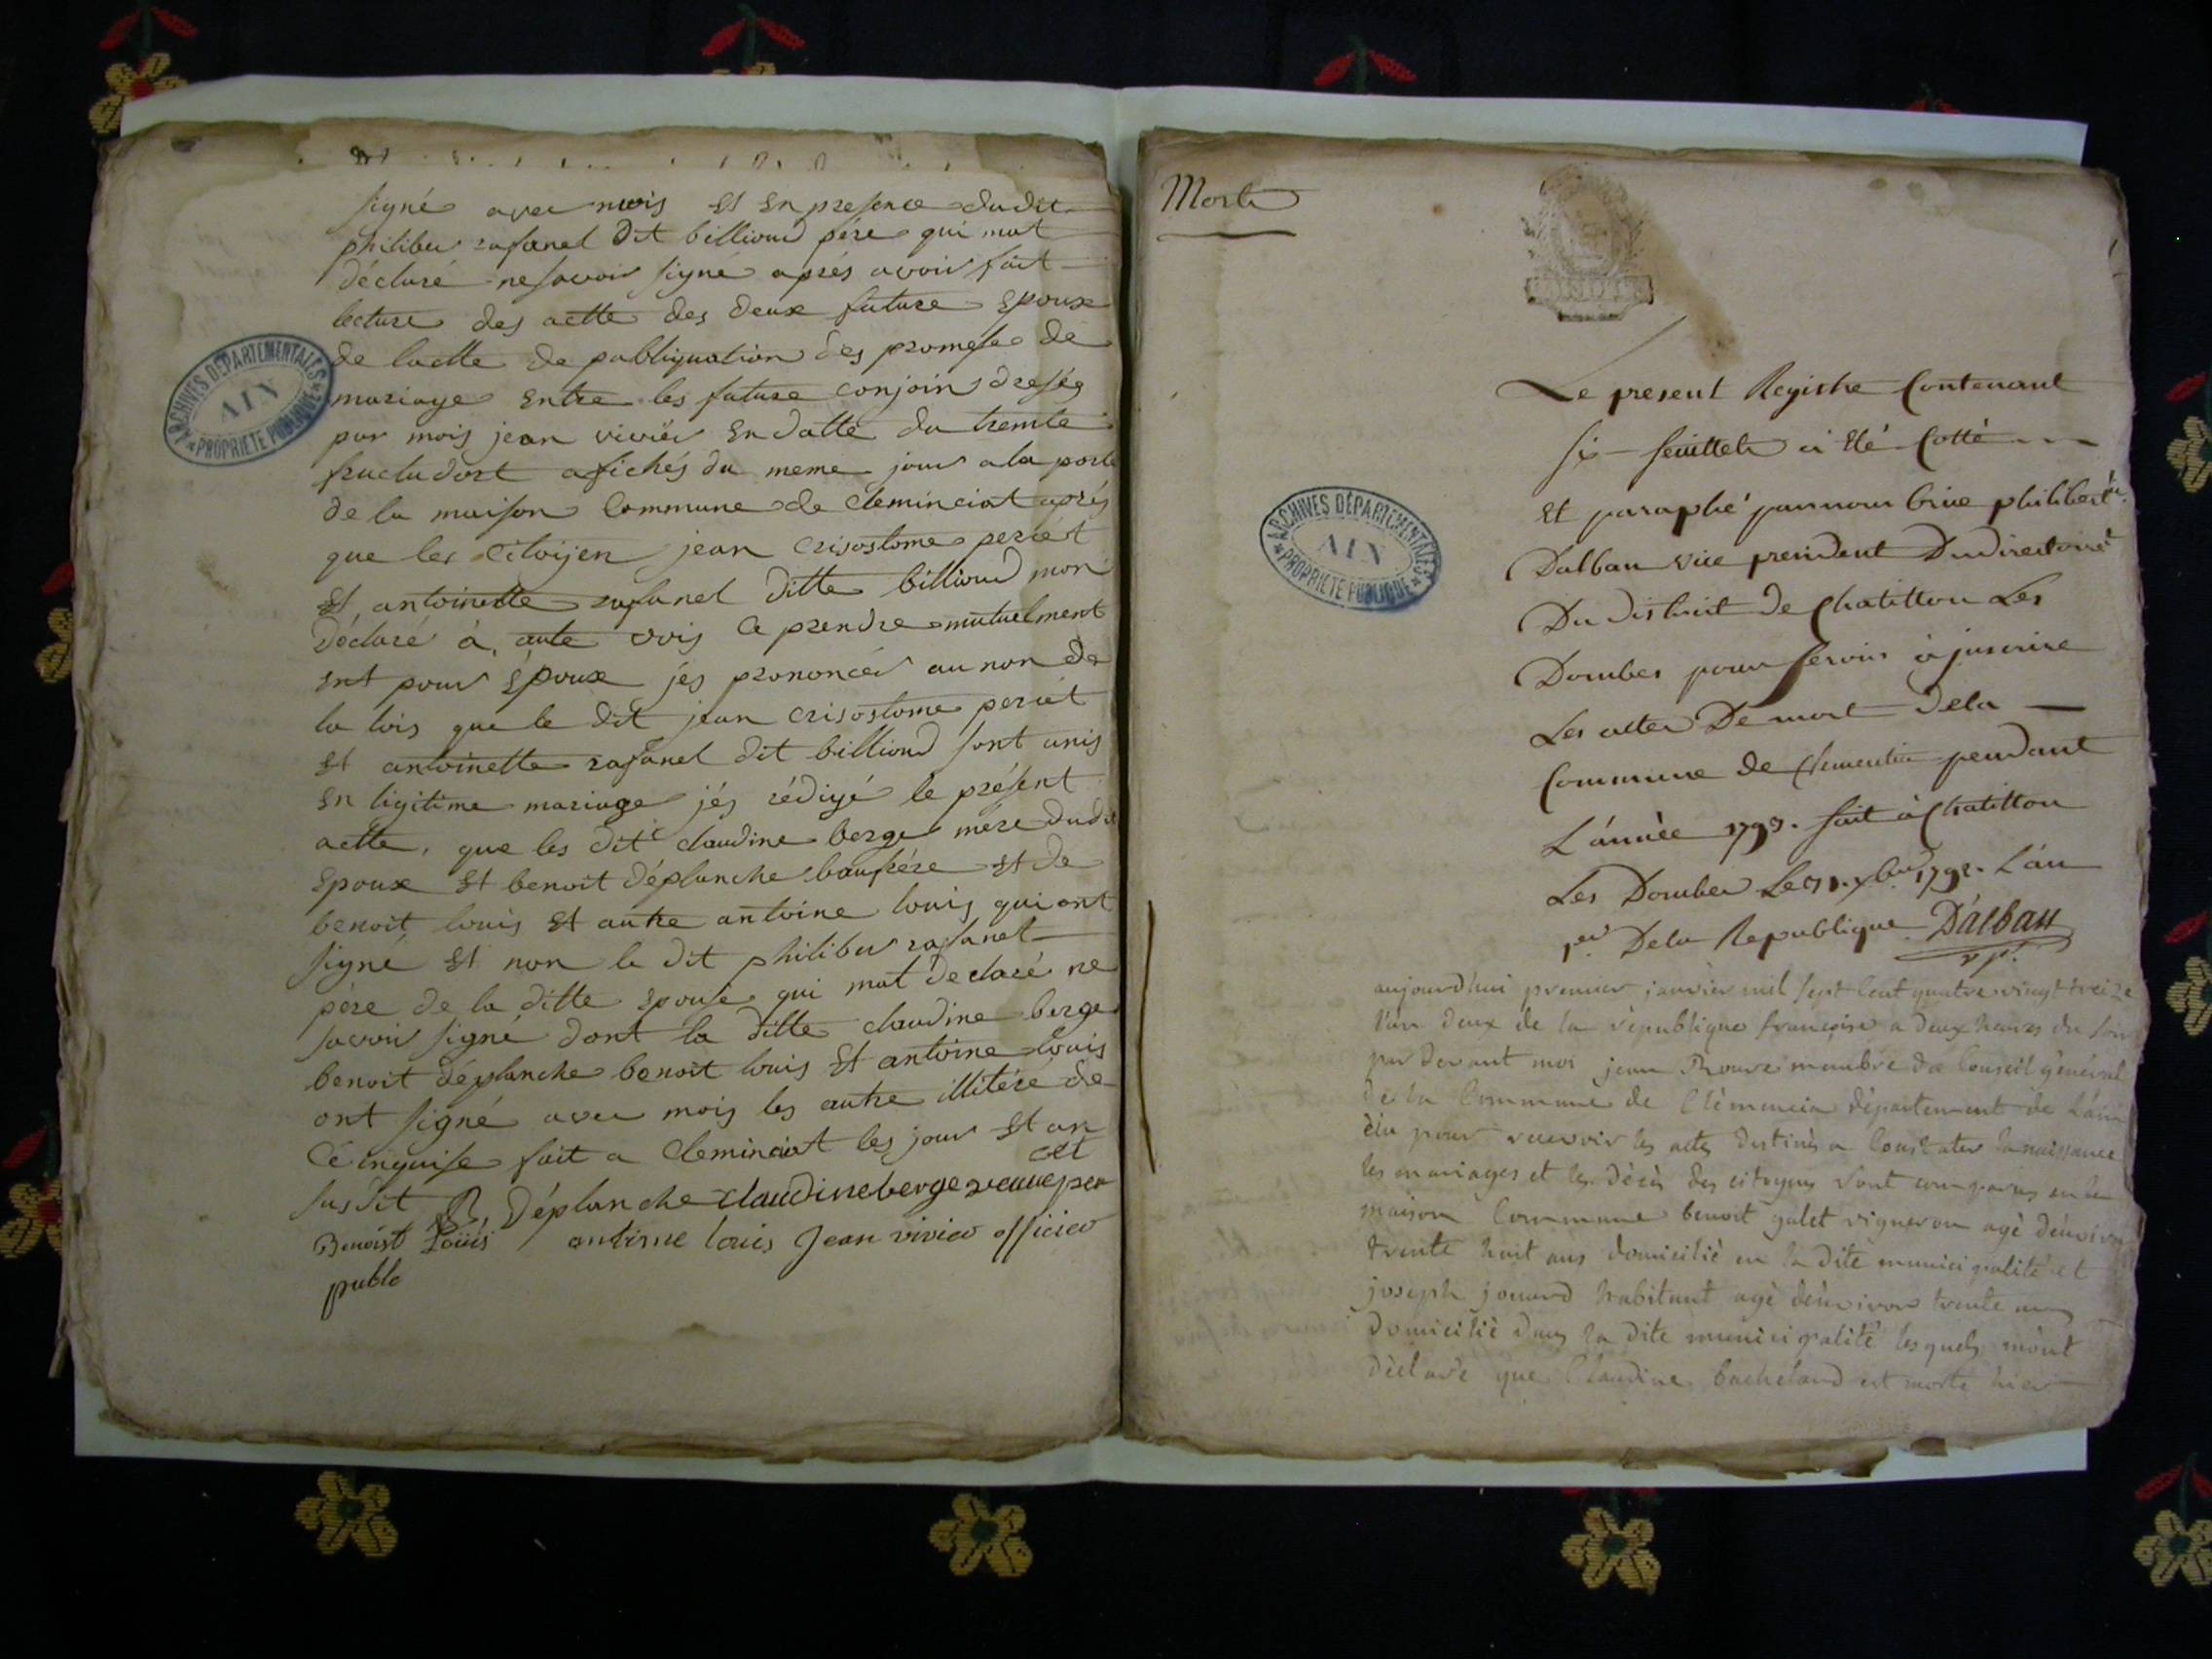 signé avec mois Et En presence dudit
philiber rafanel dit billioud pére qui mat
déclaré ne savoir signé aprés avoir fait
lecture des actte des deux future Epoux
de lactte de publiquation des promesse de
mariage Entre les future conjoin dresés
par mois jean vivier En datte du trente
fructudort afichés du meme jour a la porte
de la maison Commune de cleminciat aprés
que les Citoijen jean crisostome periét
Et antoinette rafanel ditte billioud mon
déclaré à aute vois Ce prendre mutuelment
Ent pour Époux jés prononcér au non de
la lois que le dit jean crisostome periét
Et antoinette rafanel dit billioud sont unis
En ligitime mariage jés rédigé le présent
actte, que les dit claudine berge mére dudit
Epoux Et benoit déplanche baufrére Et de
benoit louis Et autre antoine louis qui ont
signé Et non le dit philiber rafanel
pére de la ditte Epouse qui mat déclaré ne
savoir signé dont la ditte claudine berge
benoit déplanche benoit louis Et antoine louis
ont signé avec mois les autre illitéré de
Cé inquise fait a cleminciat les jour Et an
susdit B Déplanche claudine berge veuve per
iet
Benoist Loüis antoine louis Jean vivier officier
publc
ARCHIVES DÉPARTEMENTALES
AIN
PROPRIÉTÉ PUBLIQUE
Morts
Le present Registre Contenant
six feuillets à été Cotté
Et paraphé par nous brice philibert
Dalban vice president Du directoire
Du district de Chatillon Les
Dombes pour servir à inscrire
Les actes De mort Dela
Commune de Clementia pendant
L'année 1793. fait à Chatillon
Les Dombes Le 31. xbre 1792. L'an
1er Dela Republique Dalban
vp.
aujourd'hui premier janvier mil sept cent quatre vingt treize
l'an deux de la république françoise a deux heures du soir
par devant moi jean membre du Conseil général
de la Commune de Clémencia département de L'ain
élu pour recevoir les actes destinés a Constater la naissance
les mariages et les décès des citoyens sont comparus en la
maison Commune benoit galet vigneron agé d'environ
trente huit ans domicilié en la dite municipalité et
joseph jouard habitant agé d'environ trente ans
domicilié dans la dite municipalité lesquels m'ont
déclaré que Claudine bachelard est morte hier
ARCHIVES DÉPARTEMENTALES
AIN
PROPRIÉTÉ PUBLIQUE